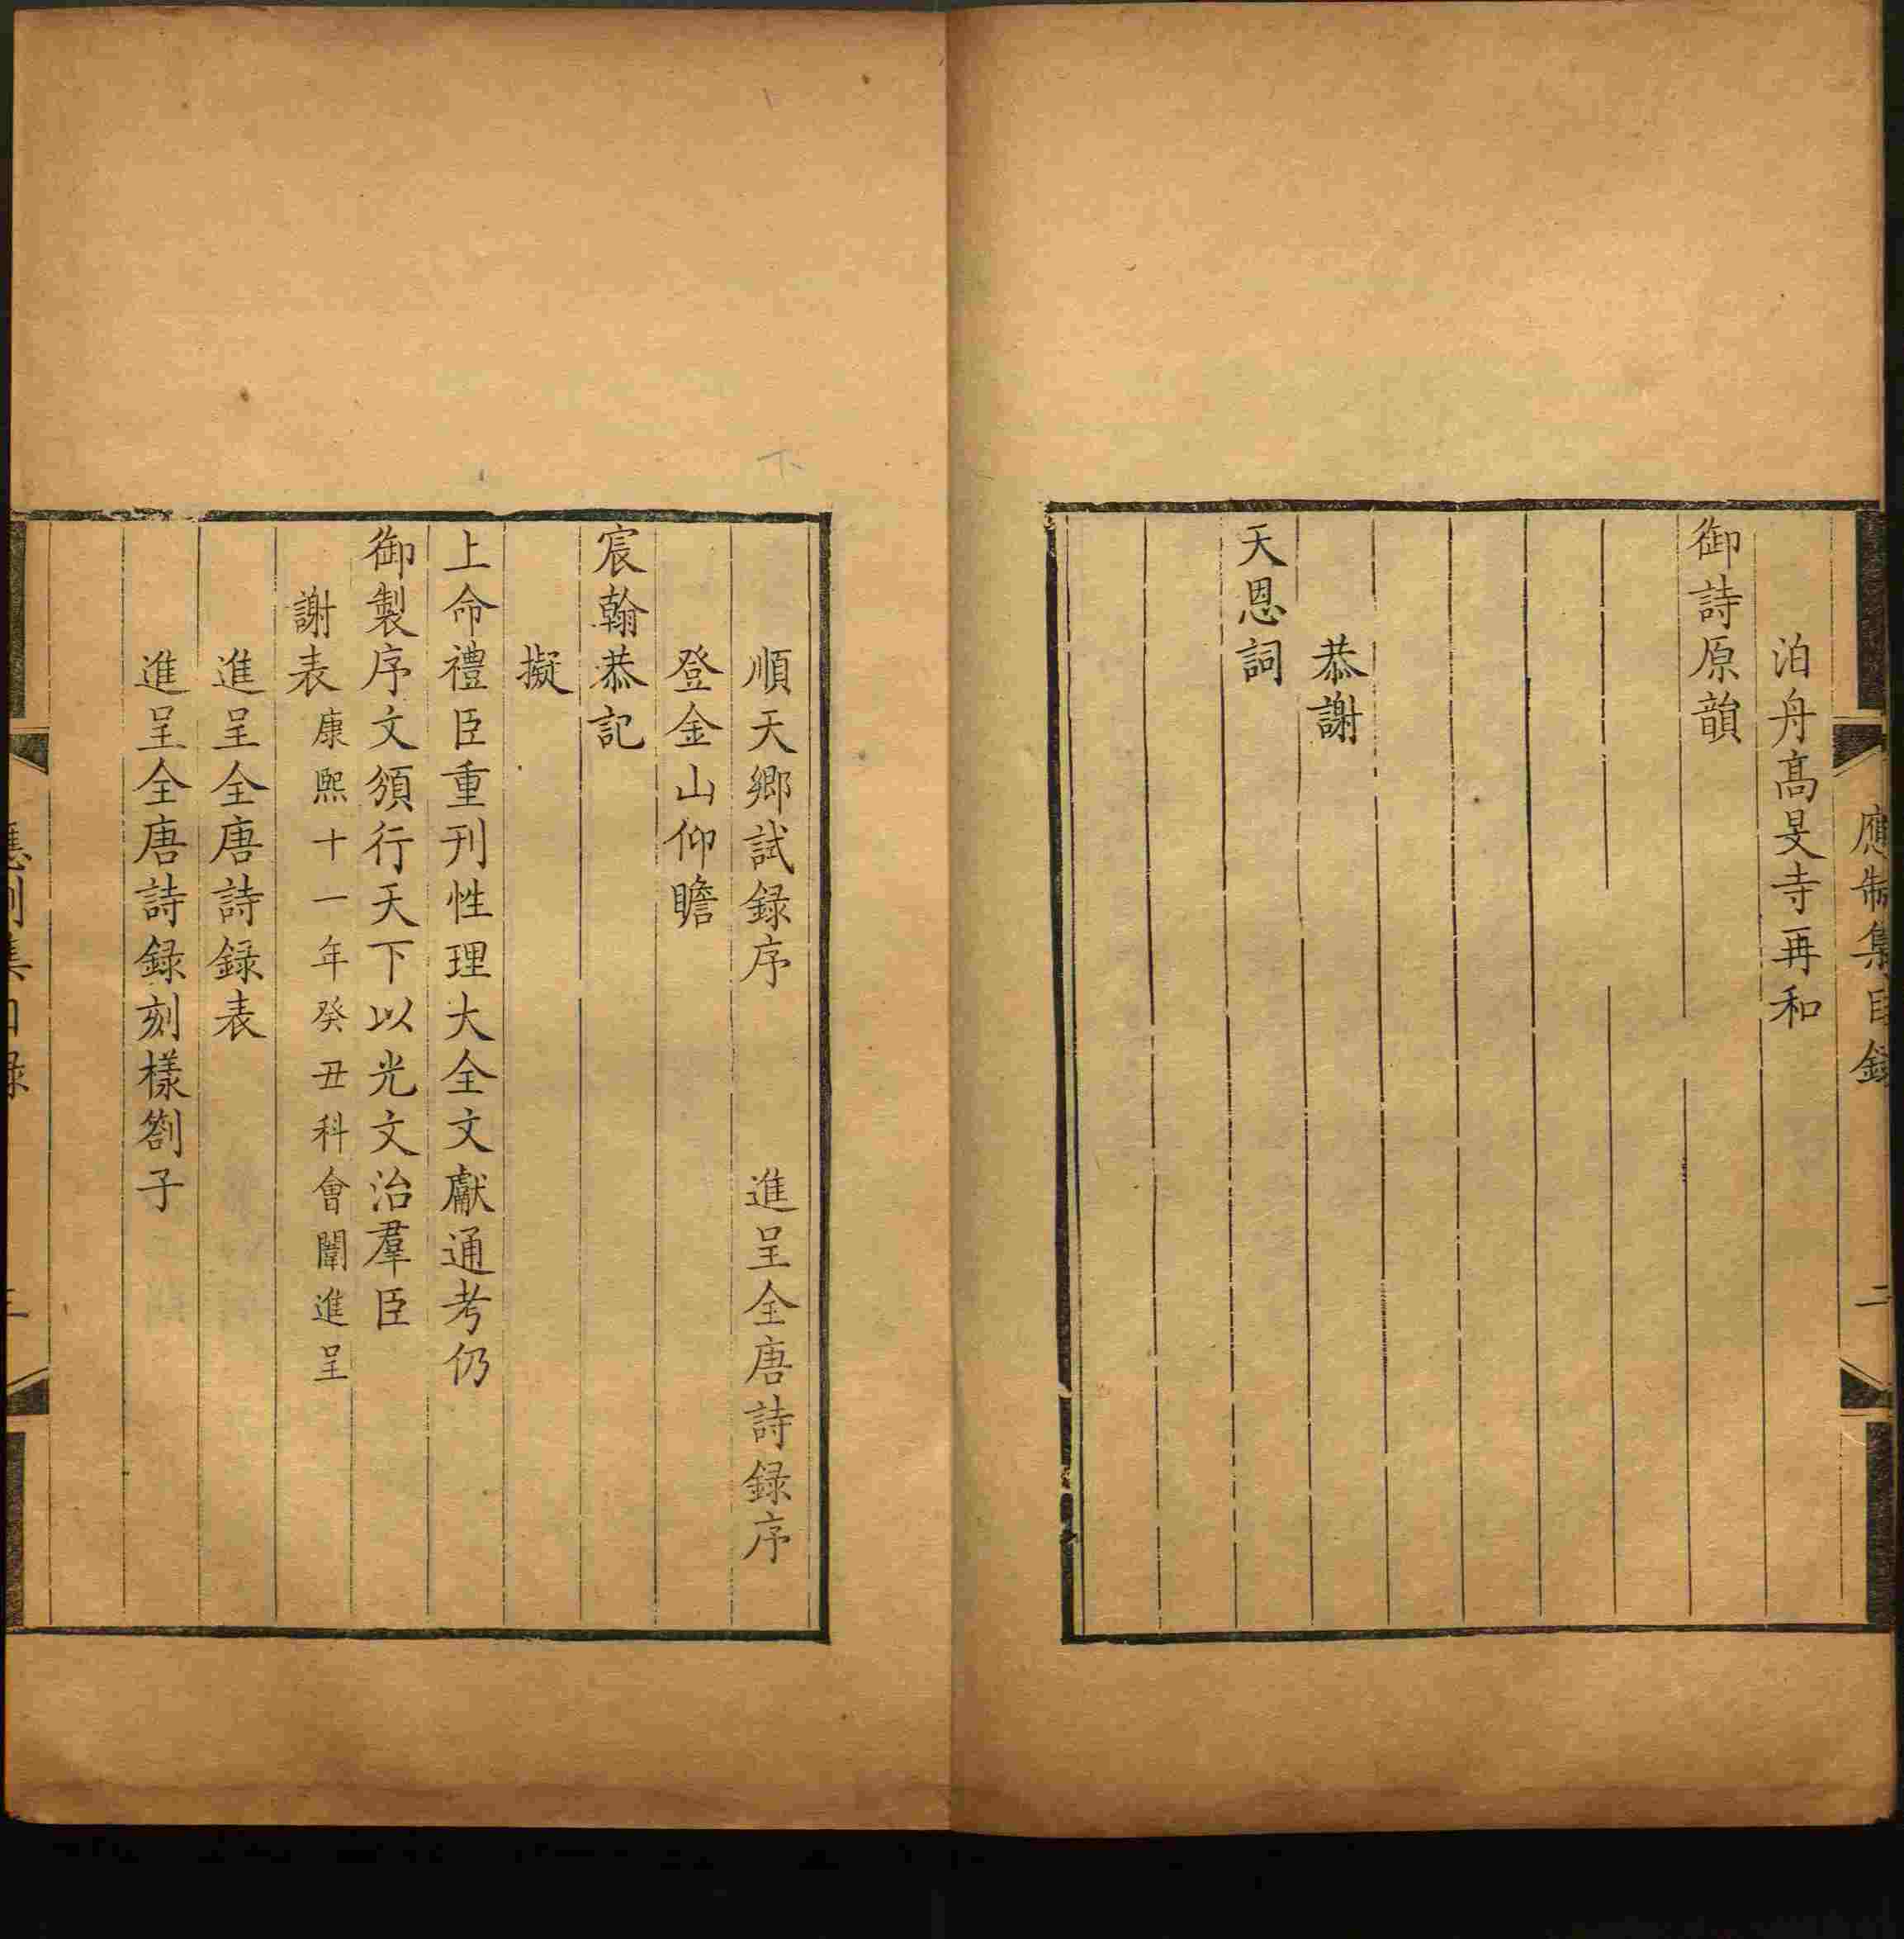 應制集目録
二
泊舟高旻寺再和
御詩原韻
恭謝
天恩詞
順天鄉試録序
進呈全唐詩録序
登金山仰瞻
宸翰恭記
擬
上命禮臣重刊性理大全文獻通考仍
御製序文頒行天下以光文治羣臣
謝表康熙十一年癸丑科會闈進呈
進呈全唐詩録表
進呈全唐詩録刻樣劄子
應制集目録